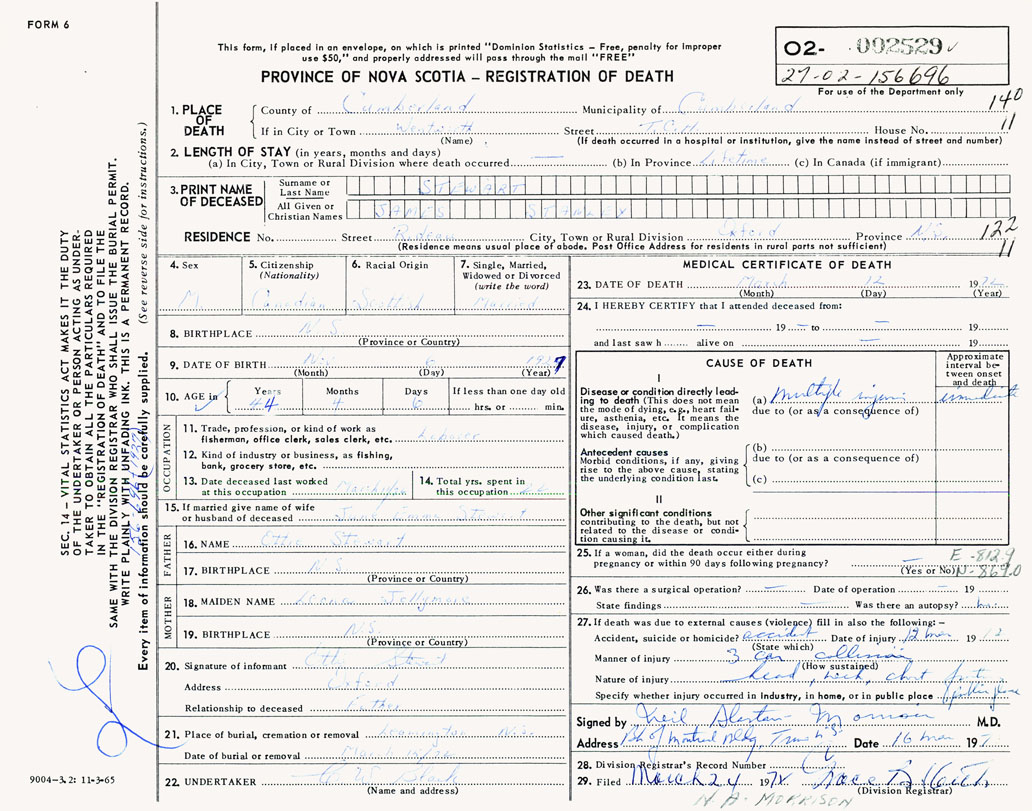 FORM 6
This form, if placed in an envelope, on which is printed "Dominion Statistics – Free, penalty for improper
use $50," and properly addressed will pass through the mail "FREE"
PROVINCE OF NOVA SCOTIA – REGISTRATION OF DEATH
O2- 002529
27-02-156696
For use of the Department only
140
11
1. PLACE OF DEATH
County of Cumberland Municipality of Cumberland
If in City or Town Wentworth Street T.C.H. House No.
(Name) (If death occurred in a hospital or institution, give the name instead of street and number)
2. LENGTH OF STAY (in years, months and days)
(a) In City, Town or Rural Division where death occurred — (b) In Province Lifetime (c) In Canada (if immigrant)
3. PRINT NAME OF DECEASED
Surname or Last Name STEWART
All Given or Christian Names JAMES STANLEY
122
11
RESIDENCE No. Street City, Town or Rural Division Oxford Province N.S.
(Residence means usual place of abode. Post Office Address for residents in rural parts not sufficient)
4. Sex M.
5. Citizenship (Nationality) Canadian
6. Racial Origin Scottish
7. Single, Married, Widowed or Divorced (write the word) Married
8. BIRTHPLACE N.S.
(Province or Country)
9. DATE OF BIRTH Nov. 6 1927
(Month) (Day) (Year)
10. AGE in Years 44 Months 4 Days 6 If less than one day old hrs. or min.
OCCUPATION
11. Trade, profession, or kind of work as fisherman, office clerk, sales clerk, etc. Labourer
12. Kind of industry or business, as fishing, bank, grocery store, etc.
13. Date deceased last worked at this occupation
14. Total yrs. spent in this occupation
15. If married give name of wife or husband of deceased Stewart
FATHER
16. NAME Ottie Stewart
17. BIRTHPLACE N.S.
(Province or Country)
MOTHER
18. MAIDEN NAME Jollymore
19. BIRTHPLACE N.S.
(Province or Country)
20. Signature of informant
Address Oxford
Relationship to deceased Father
21. Place of burial, cremation or removal N.S.
Date of burial or removal March
22. UNDERTAKER
(Name and address)
MEDICAL CERTIFICATE OF DEATH
23. DATE OF DEATH March 12 1972
(Month) (Day) (Year)
24. I HEREBY CERTIFY that I attended deceased from:
— 19 — to — 19
and last saw h alive on — 19
CAUSE OF DEATH
Approximate interval between onset and death
I
Disease or condition directly leading to death (This does not mean the mode of dying, e.g., heart failure, asthenia, etc. It means the disease, injury, or complication which caused death.)
(a) multiple injuries immediate
due to (or as a consequence of)
Antecedent causes
Morbid conditions, if any, giving rise to the above cause, stating the underlying condition last.
(b)
due to (or as a consequence of)
(c)
II
Other significant conditions
contributing to the death, but not related to the disease or condition causing it.
25. If a woman, did the death occur either during pregnancy or within 90 days following pregnancy?
(Yes or No)
E-812.9
N-869.0
26. Was there a surgical operation? — Date of operation — 19
State findings — Was there an autopsy?
27. If death was due to external causes (violence) fill in also the following: –
Accident, suicide or homicide? accident Date of injury 12 mar 1972
(State which)
Manner of injury 3 car collision
(How sustained)
Nature of injury head, neck, chest
Specify whether injury occurred in industry, in home, or in public place public place
Signed by Neil Morrison M.D.
Address Bk of Montreal Bldg, Truro N.S. Date 16 mar 197
28. Division Registrar's Record Number
29. Filed March 24 1972
(Division Registrar)
N. A. MORRISON
SEC. 14 – VITAL STATISTICS ACT MAKES IT THE DUTY
OF THE UNDERTAKER OR PERSON ACTING AS UNDER-
TAKER TO OBTAIN ALL THE PARTICULARS REQUIRED
IN THE "REGISTRATION OF DEATH" AND TO FILE THE
SAME WITH THE DIVISION REGISTRAR WHO SHALL ISSUE THE BURIAL PERMIT.
WRITE PLAINLY WITH UNFADING INK. THIS IS A PERMANENT RECORD.
Every item of information should be carefully supplied. (See reverse side for instructions.)
9004–3.2: 11-3-65